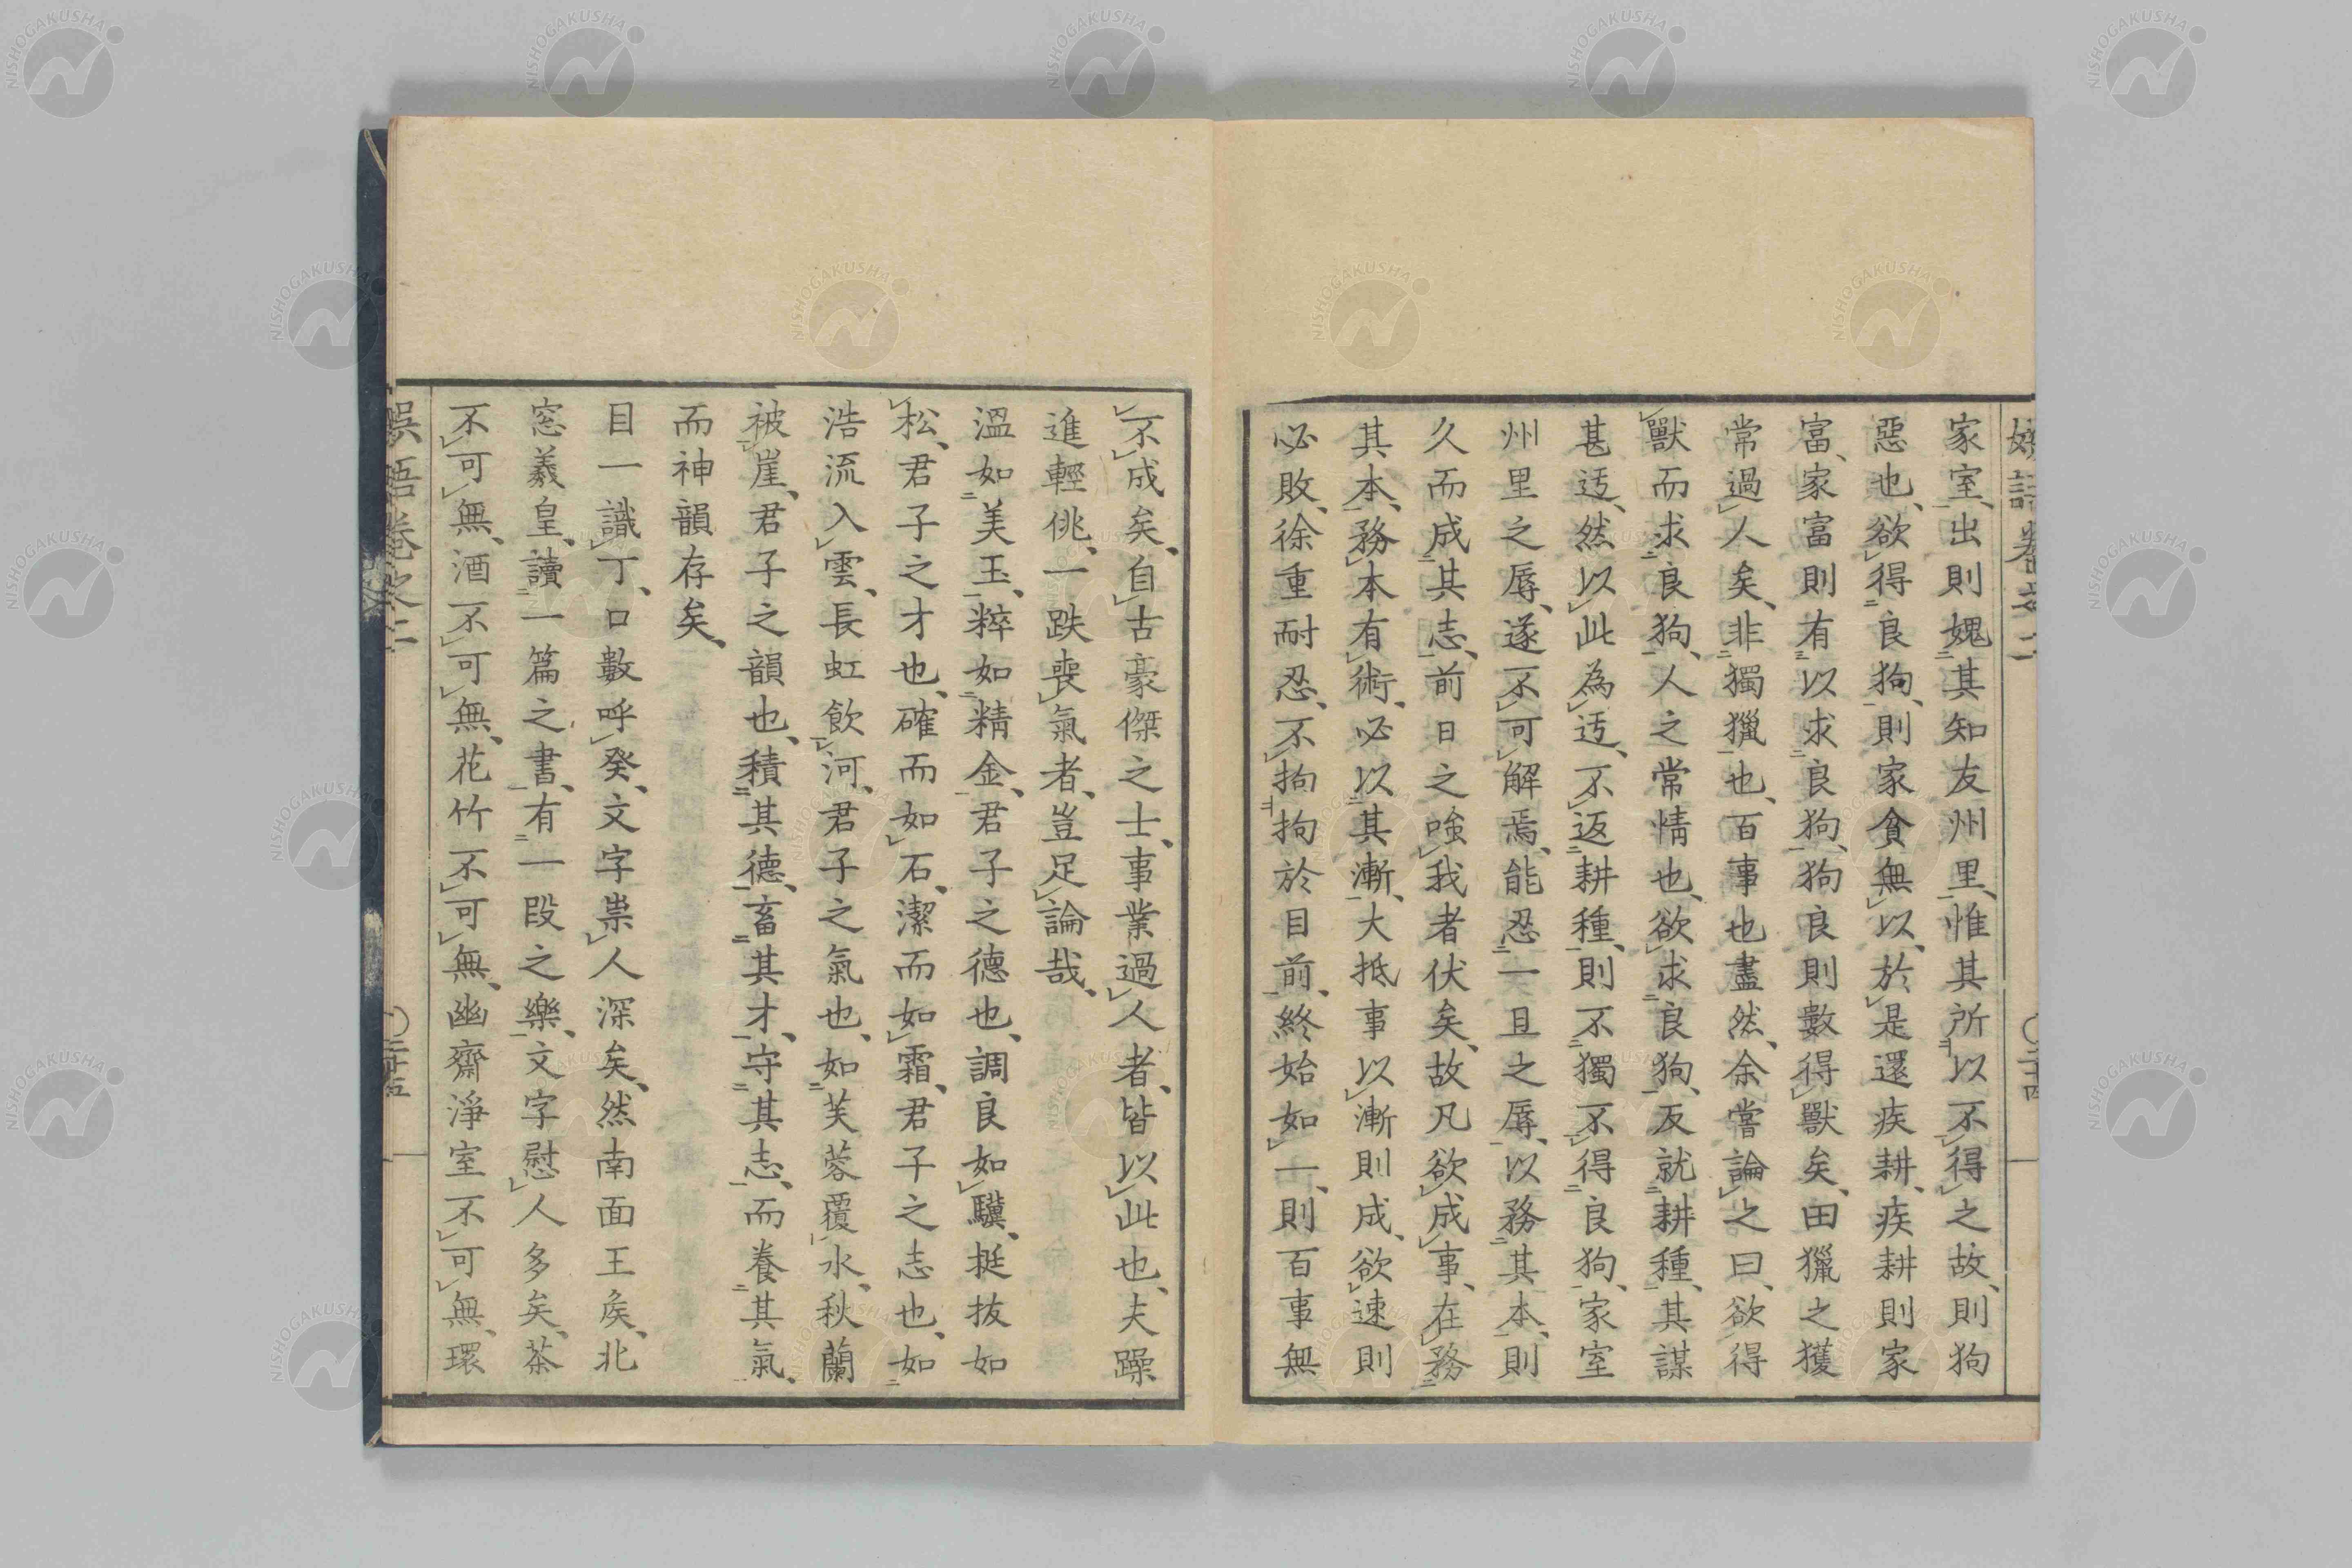 家室、出則媿其知友州里、惟其所以不得之故、則狗
惡也、欲得良狗、則家貧無以、於是還疾耕、疾耕則家
富、家富則有以求良狗、狗良則數得獸矣、田獵之獲
常過人矣、非獨獵也、百事也盡然、余嘗論之曰、欲得
獸而求良狗、人之常情也、欲求良狗、反就耕種、其謀
甚迃、然以此為迃、不返耕種、則不獨不得良狗、家室
州里之辱、遂不可解焉、能忍一旦之辱、以務其本、則
久而成其志、前日之嗤我者伏矣、故凡欲成事、在務
其本、務本有術、必以其漸、大抵事以漸則成、欲速則
必敗、徐重耐忍、不拘拘於目前、終始如一、則百事無
不成矣、自古豪傑之士、事業過人者、皆以此也、夫躁
進輕佻、一跌喪氣者、豈足論哉、
溫如美玉、粹如精金、君子之德也、調良如驥、挺拔如
松、君子之才也、確而如石、潔而如霜、君子之志也、如
浩流入雲、長虹飲河、君子之氣也、如芙蓉覆水、秋蘭
被崖、君子之韻也、積其德、畜其才、守其志、而養其氣、
而神韻存矣、
目一識丁、口數呼癸、文字祟人深矣、然南面王矦、北
窓羲皇、讀一篇之書、有一段之樂、文字慰人多矣、茶
不可無、酒不可無、花竹不可無、幽齋淨室不可無、環
娯語卷之二
二十五
NISHOGAKUSHA